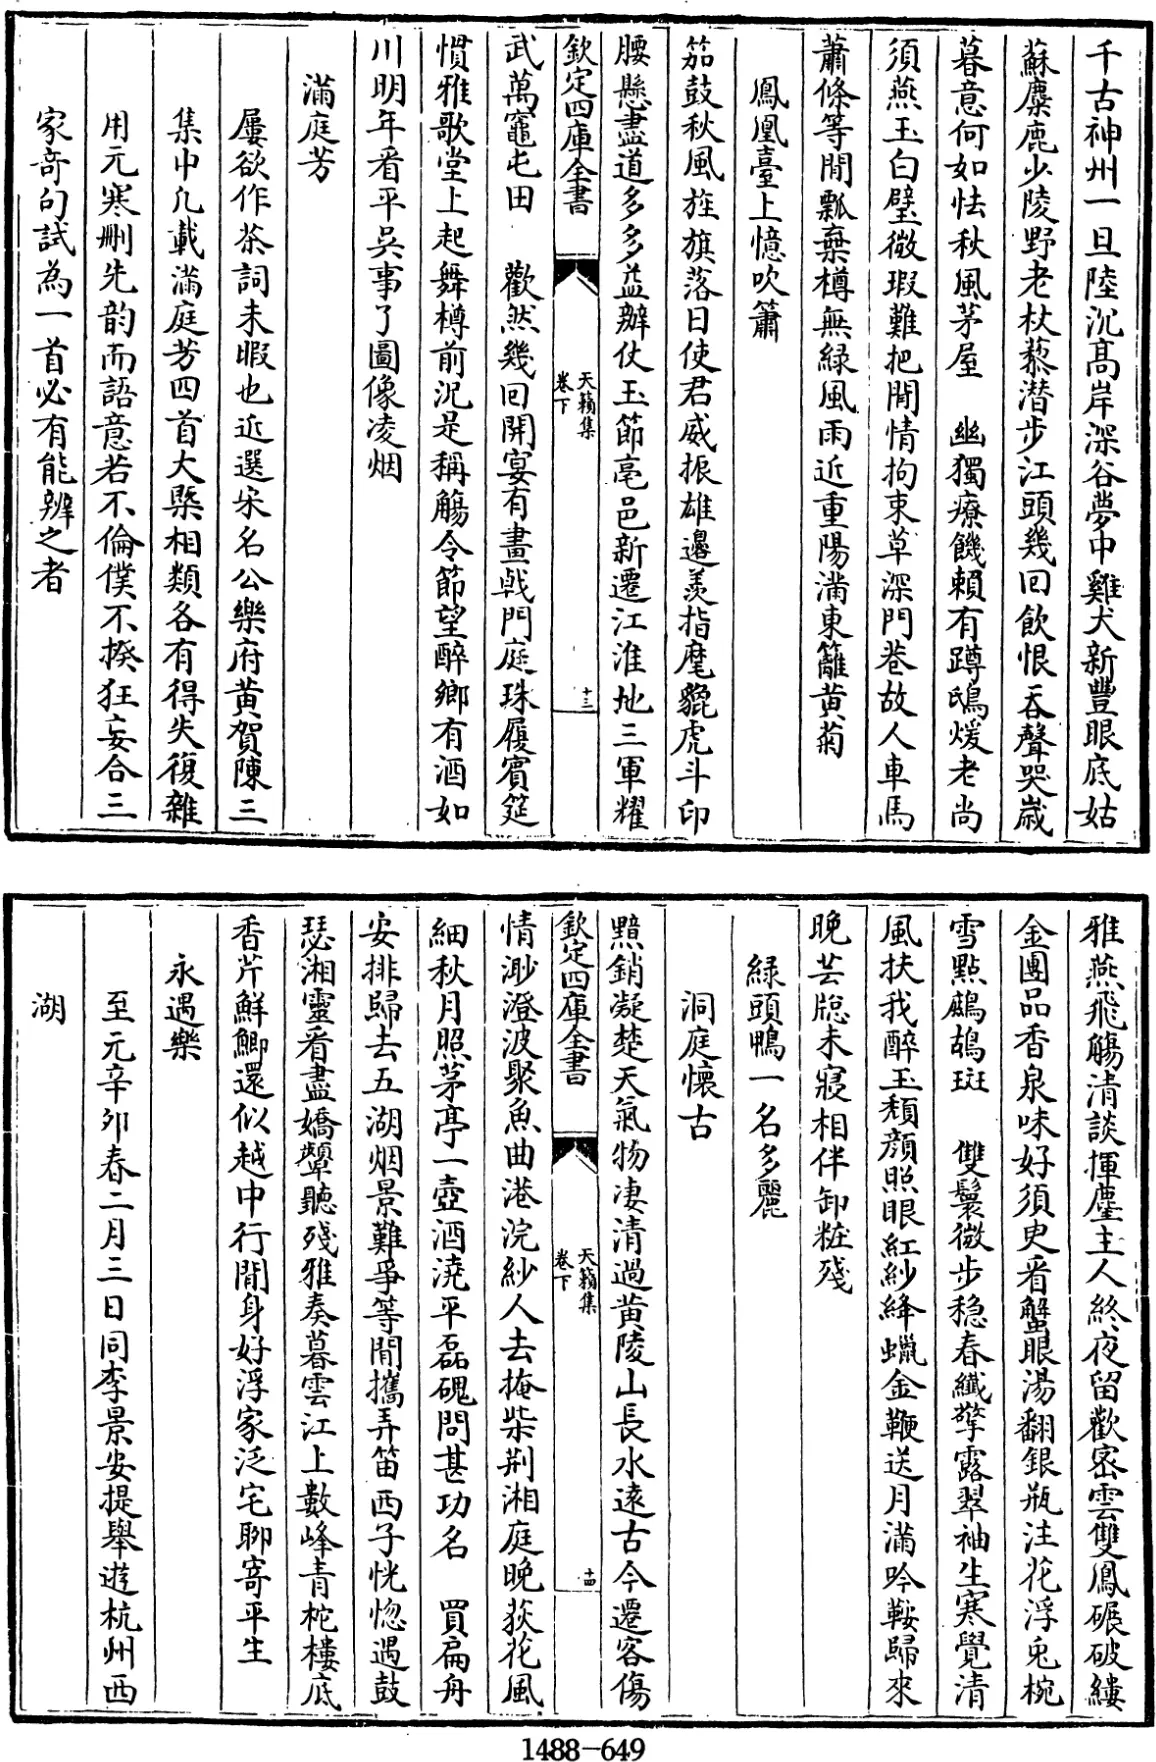 千古神州一旦陸沉髙岸深谷夢中雞犬新豐眼底姑
蘇麋鹿少陵野老杖藜潛步江頭幾回飲恨吞聲哭歳
暮意何如怯秋風茅屋　幽獨療饑賴有蹲鴟煖老尚
須燕玉白璧微瑕難把閒情拘束草深門巷故人車馬
蕭條等閒瓢棄樽無緑風雨近重陽滿東籬黄菊
鳳凰臺上憶吹簫
笳鼓秋風旌旗落日使君威振雄邉羡指麾貔虎斗印
腰懸盡道多多益辦仗玉節亳邑新遷江淮地三軍耀
欽定四庫全書
天籟集
卷下
十三
武萬竈屯田　歡然幾回開宴有畫戟門庭珠履賓筵
慣雅歌堂上起舞樽前況是稱觴令節望醉鄉有酒如
川明年看平吳事了圖像凌烟
滿庭芳
屢欲作茶詞未暇也近選宋名公樂府黄賀陳三
集中凡載滿庭芳四首大槩相類各有得失復雜
用元寒刪先韵而語意若不倫僕不揆狂妄合三
家奇句試為一首必有能辨之者
雅燕飛觴清談揮麈主人終夜留歡密雲雙鳳碾破縷
金團品香泉味好須臾看蟹眼湯翻銀瓶注花浮兎椀
雪點鷓鴣斑　雙鬟微步穏春纎擎露翠袖生寒覺清
風扶我醉玉頽顔照眼紅紗絳蠟金鞭送月滿吟鞍歸來
晚芸牕未寢相伴卸粧殘
緑頭鴨一名多麗
洞庭懷古
黯銷凝楚天氣物凄清過黄陵山長水逺古今遷客傷
欽定四庫全書
天籟集
卷下
十四
情渺澄波聚魚曲港浣紗人去掩柴荆湘庭晚荻花風
細秋月照茅亭一壺酒澆平磊磈問甚功名　買扁舟
安排歸去五湖烟景難爭等閒攜弄笛西子恍惚遇鼓
瑟湘靈看盡嬌顰聽殘雅奏暮雲江上數峰青柁樓底
香芹鮮鯽還似越中行閒身好浮家泛宅聊寄平生
永遇樂
至元辛夘春二月三日同李景安提舉遊杭州西
湖
1488-649